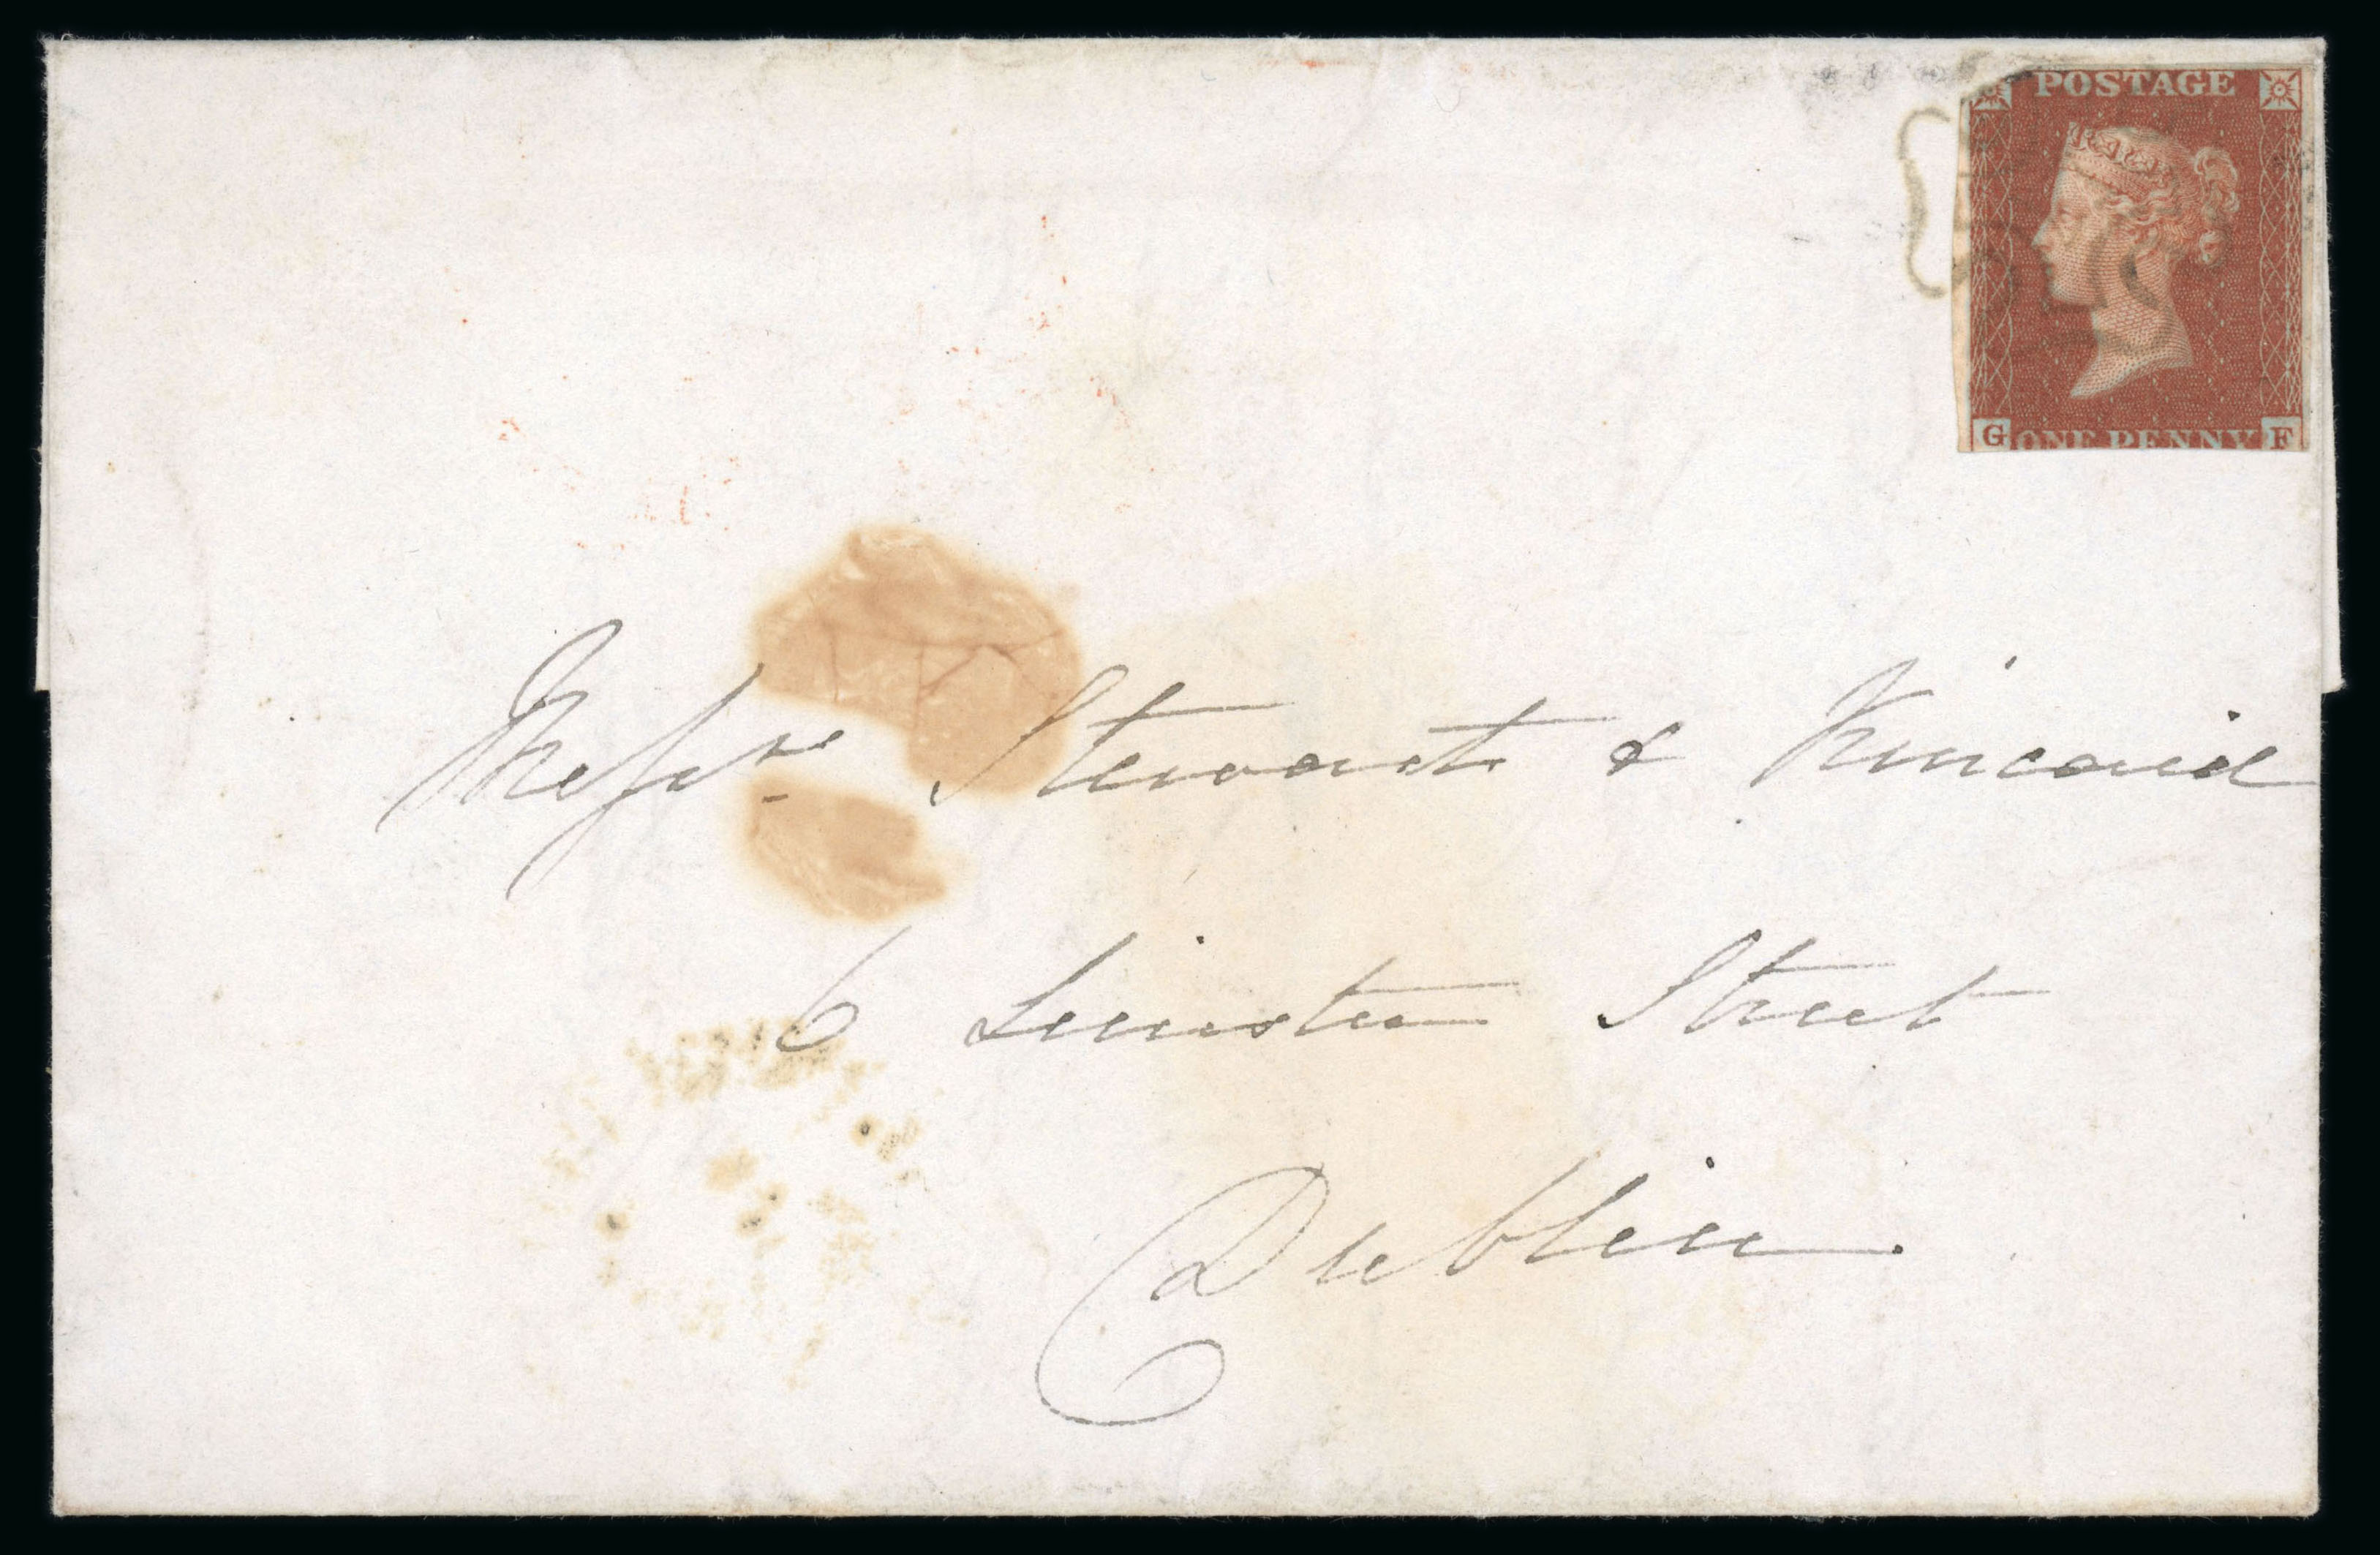 POSTAGE
G ONE PENNY F
Messrs Stewart & Kincaid
6 Leinster Street
Dublin